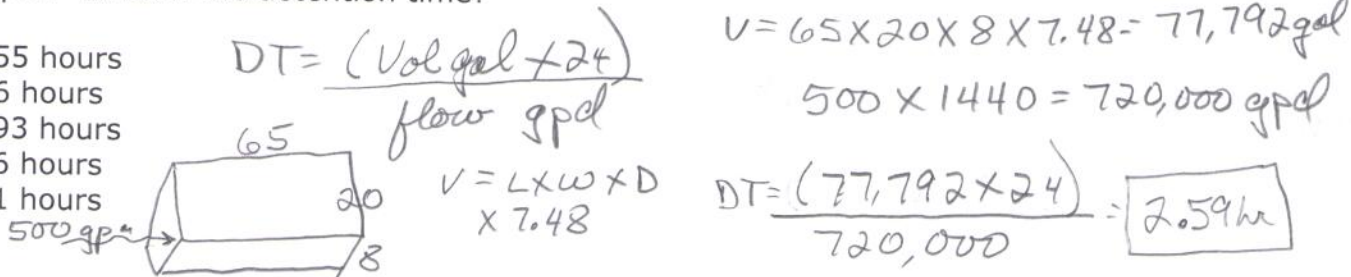 detention time?
55 hours
5 hours
93 hours
5 hours
1 hours
DT= (Vol gal × 24)
flow gpd
65
20
8
500 gpm
V = L × W × D
× 7.48
V = 65 × 20 × 8 × 7.48 = 77,792 gal
500 × 1440 = 720,000 gpd
DT= (77,792 × 24)
720,000
= 2.59 hr